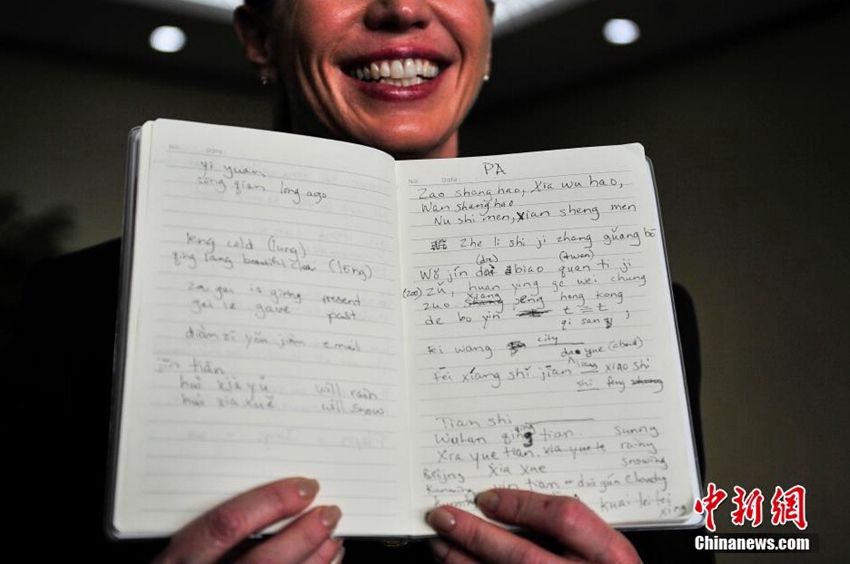 yi yuan
cóng qián long ago
leng cold (lung)
qing lang beautiful clear (lěng)
zai gei is giving present
gei le gave past
diàn zǐ yóu jiàn email
jīn tiān
huì xià yǔ will rain
huì xia xuě will snow
PA
Zao shang hao, Xia wu hao,
Wan shang hao
Nu shi men, Xian sheng men
Zhe li shi ji zhang guǎng bō
Wǒ jīn dài biao quan ti ji
(zoo) zǔ, huan ying ge wei chung
zuo xiang hong kong
de bo yin
qi san
fei wang city
da yue (about)
fēi xíang shí jīan liang xiao shi
shi feng
Tian shi
Wuhan qing tian sunny
Xia yue tian rainy
Beijing Xia xue snowing
Kunming yin tian - duō yún cloudy
kuai lei fei
xing
中新网
Chinanews.com